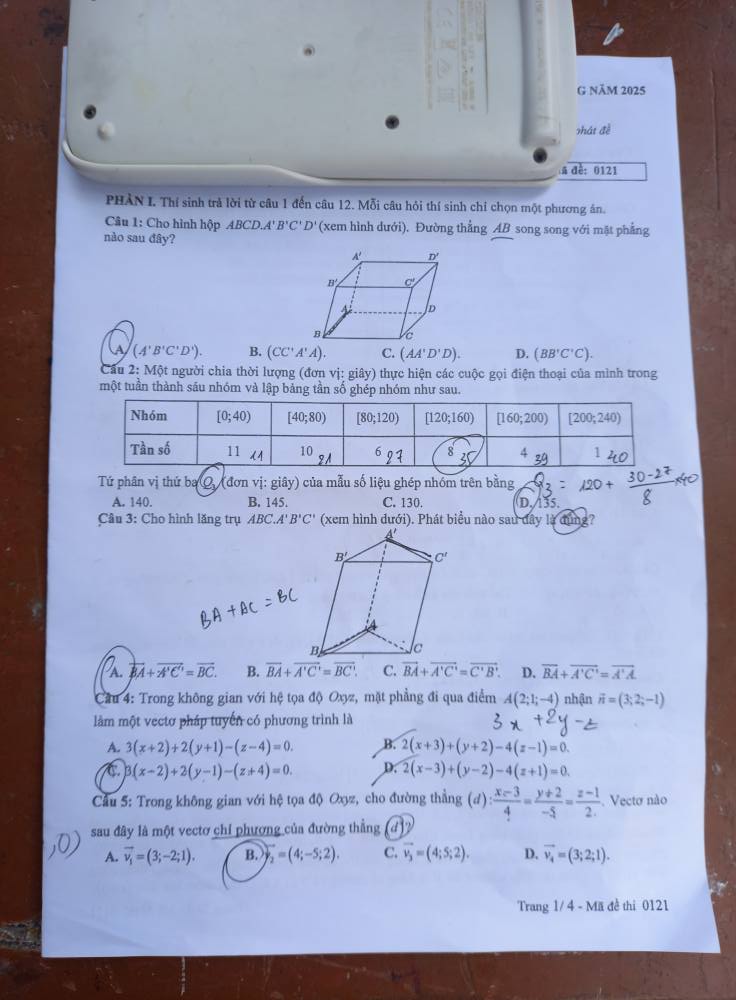 G NĂM 2025
phát đề
ã đề: 0121
PHẦN I. Thí sinh trả lời từ câu 1 đến câu 12. Mỗi câu hỏi thí sinh chỉ chọn một phương án.
Câu 1: Cho hình hộp ABCD.A'B'C'D' (xem hình dưới). Đường thẳng AB song song với mặt phẳng
nào sau đây?
A' D'
B' C'
A D
B C
A. (A'B'C'D'). B. (CC'A'A). C. (AA'D'D). D. (BB'C'C).
Câu 2: Một người chia thời lượng (đơn vị: giây) thực hiện các cuộc gọi điện thoại của mình trong
một tuần thành sáu nhóm và lập bảng tần số ghép nhóm như sau.
Nhóm [0;40) [40;80) [80;120) [120;160) [160;200) [200;240)
Tần số 11 11 10 21 6 27 8 35 4 39 1 40
Tứ phân vị thứ ba Q3 (đơn vị: giây) của mẫu số liệu ghép nhóm trên bằng Q3 = 120 + (30-27)/8 × 40
A. 140. B. 145. C. 130. D. 135.
Câu 3: Cho hình lăng trụ ABC.A'B'C' (xem hình dưới). Phát biểu nào sau đây là đúng?
A'
B' C'
BA + AC = BC
A
B C
A. BA + A'C' = BC. B. BA + A'C' = BC'. C. BA + A'C' = C'B'. D. BA + A'C' = A'A.
Câu 4: Trong không gian với hệ tọa độ Oxyz, mặt phẳng đi qua điểm A(2;1;−4) nhận n = (3;2;−1)
làm một vectơ pháp tuyến có phương trình là
3x + 2y - z
A. 3(x+2)+2(y+1)−(z−4)=0. B. 2(x+3)+(y+2)−4(z−1)=0.
C. 3(x−2)+2(y−1)−(z+4)=0. D. 2(x−3)+(y−2)−4(z+1)=0.
Câu 5: Trong không gian với hệ tọa độ Oxyz, cho đường thẳng (d): (x−3)/4 = (y+2)/−5 = (z−1)/2. Vectơ nào
sau đây là một vectơ chỉ phương của đường thẳng (d)?
,0)
A. v1 = (3;−2;1). B. v2 = (4;−5;2). C. v3 = (4;5;2). D. v4 = (3;2;1).
Trang 1/ 4 - Mã đề thi 0121